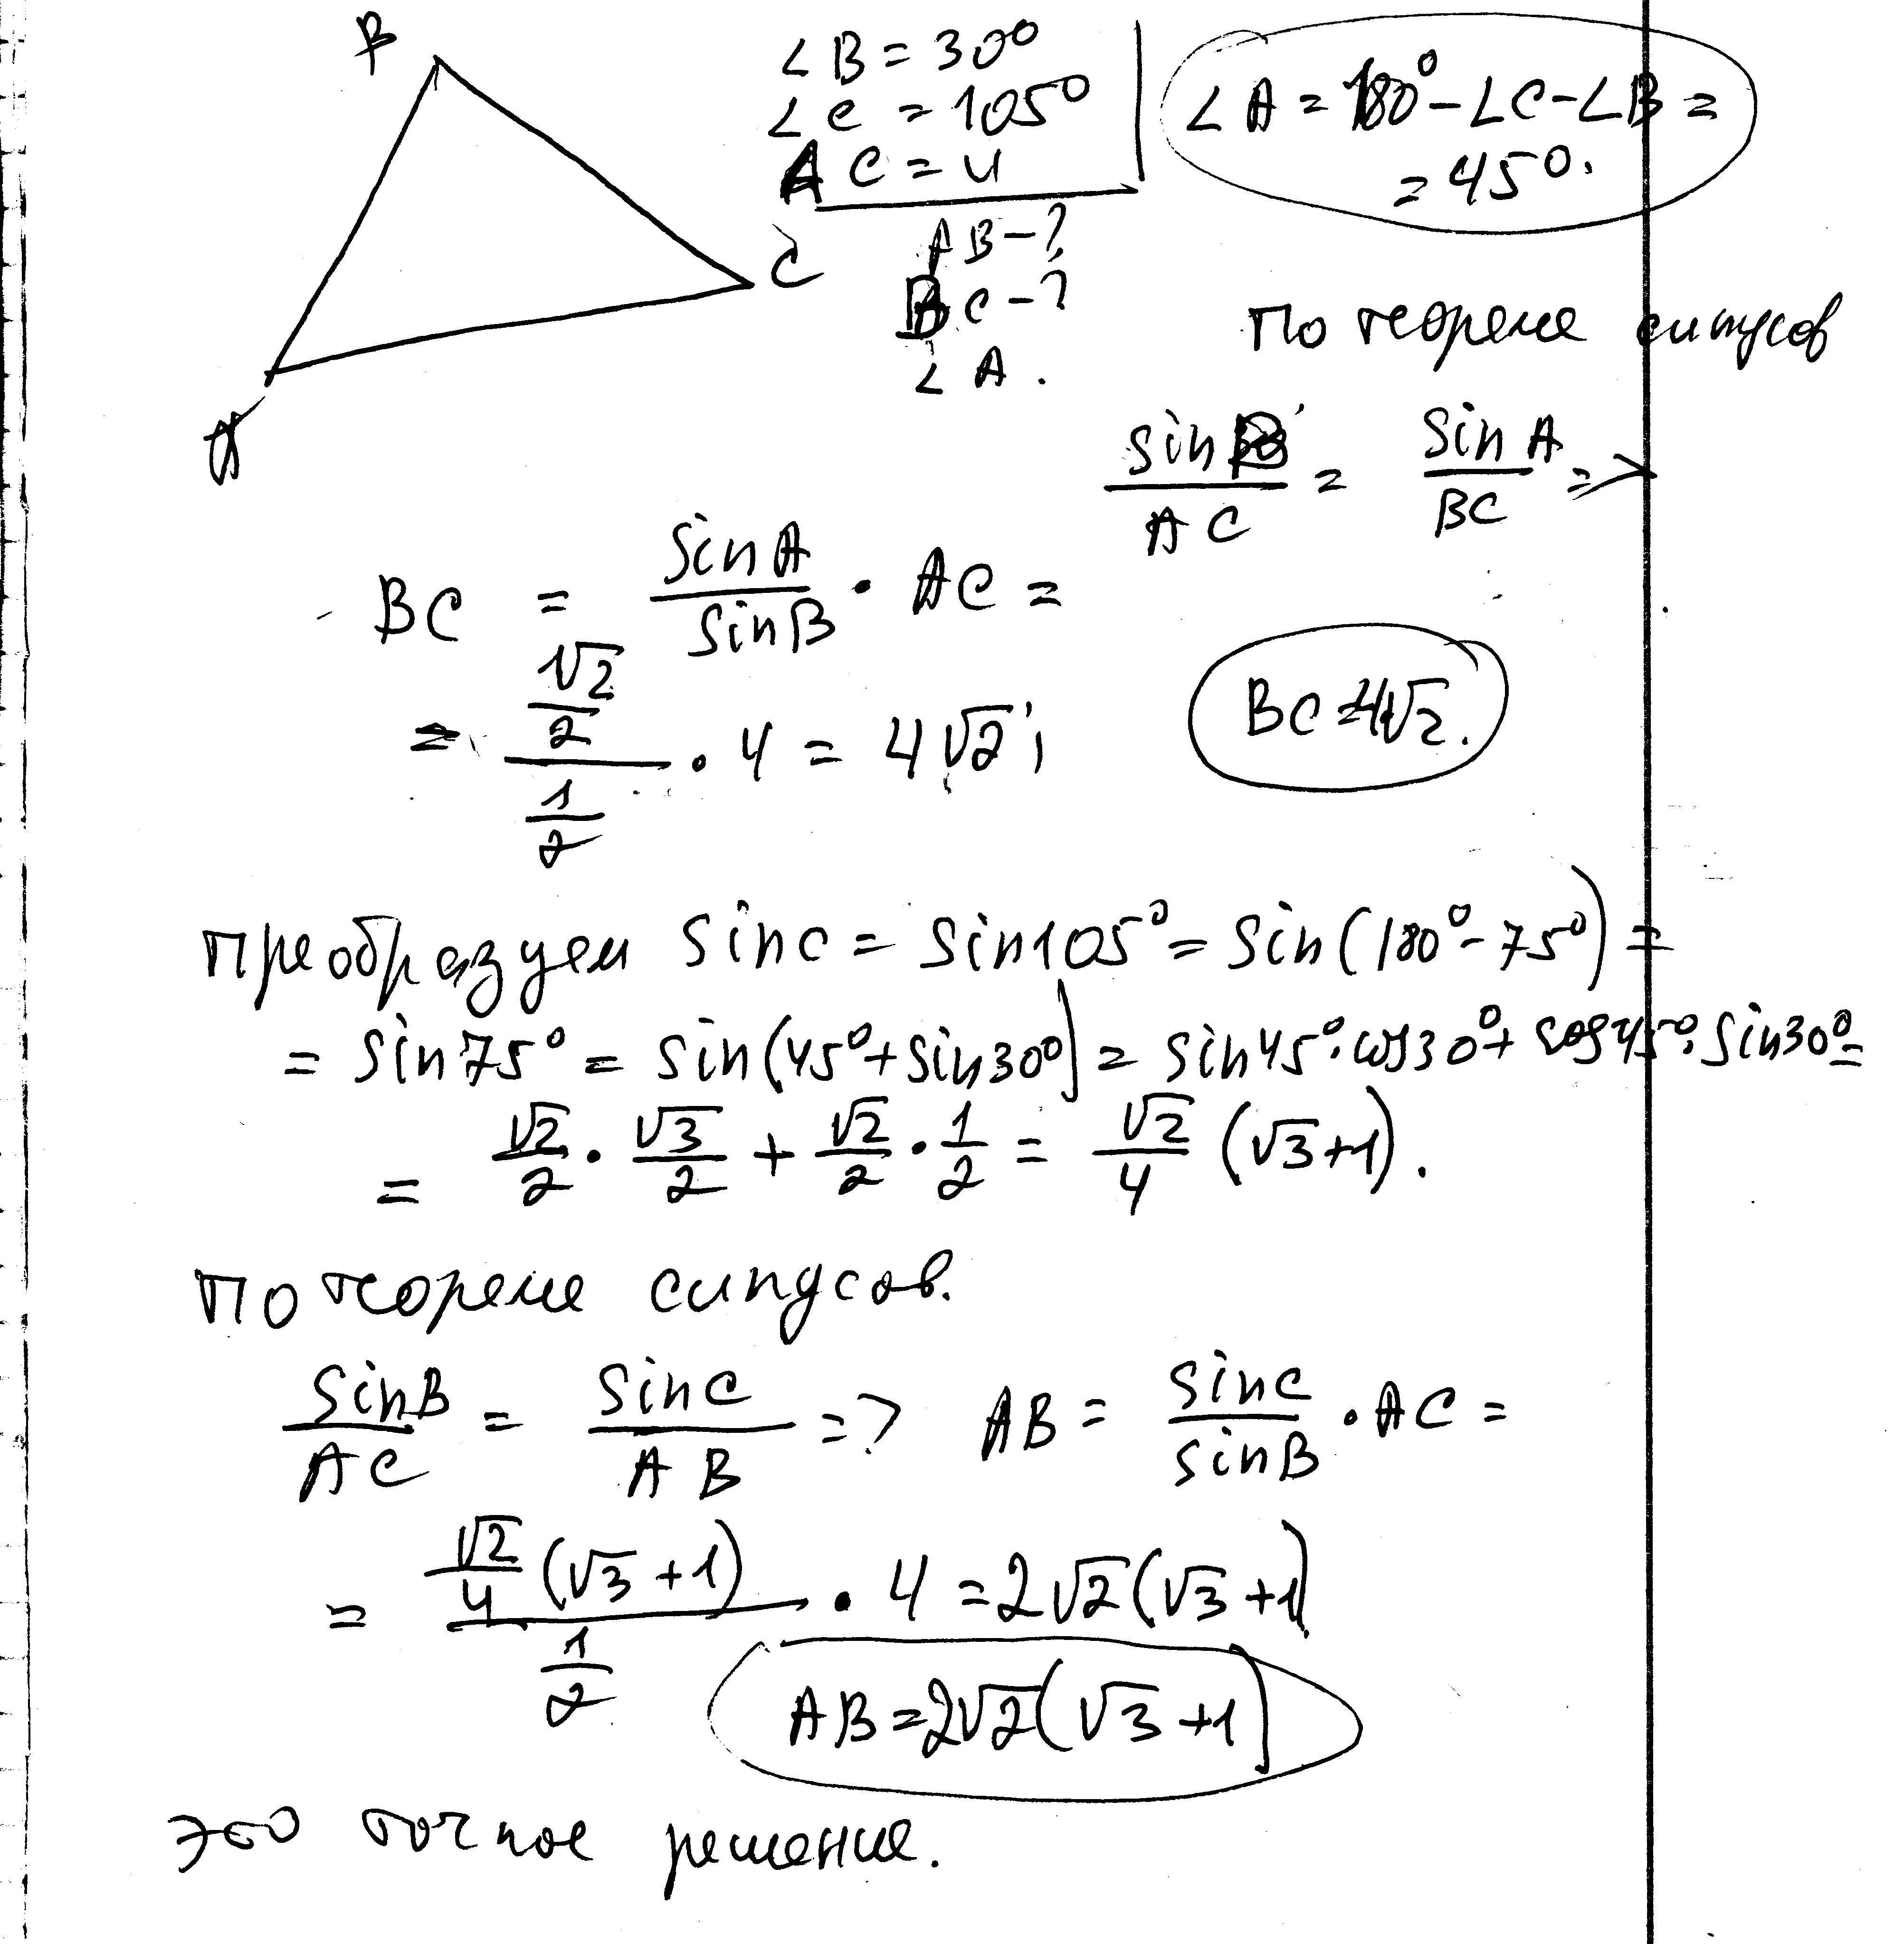 B
∠B = 30°
∠C = 105°
AC = 4
∠A = 180° - ∠C - ∠B =
= 45°.
AB - ?
C
BC - ?
∠A.
A
По теореме синусов
sinB/AC = sinA/BC =>
BC = sinA/sinB · AC =
= (1√2/2)/(1/2) · 4 = 4√2;
BC = 4√2.
преобразуем sinC = sin105° = sin(180° - 75°) =
= sin75° = sin(45° + sin30°) = sin45°·cos30° + cos45°·sin30° =
= √2/2 · √3/2 + √2/2 · 1/2 = √2/4 (√3+1).
По теореме синусов.
sinB/AC = sinC/AB => AB = sinC/sinB · AC =
= (√2/4 (√3+1))/(1/2) · 4 = 2√2(√3+1)
AB = 2√2(√3+1)
это точное решение.